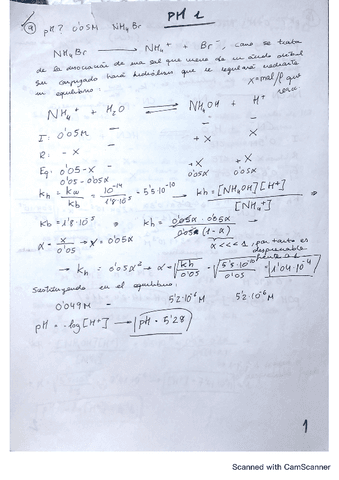 PH 1
a) pH? 0'05M NH4Br
NH4Br → NH4+ + Br-, como se trata
de la disociación de una sal que viene de un ácido
su conjugado hará hidrólisis que se regulará mediante
un equilibrio: x=mol/l que
NH4+ + H2O ⇌ NH4OH + H+
I: 0'05M - - -
R: -x - +x +x
Eq: 0'05-x - +x +x
0'05-0'05α 0'05α 0'05α
kh = kw/kb = 10^-14/1'8·10^-5 = 5'5·10^-10 kh = [NH4OH][H+]/[NH4+] ⇒
kb = 1'8·10^-5 ⇒ kh = 0'05α·0'05α/0'05(1-α) ⇒
α = x/0'05 → x = 0'05α α<<<1, por tanto es
despreciable
frente a 1
→ kh = 0'05α² → α = √(kh/0'05) = √(5'5·10^-10/0'05) = 1'04·10^-4
Sustituyendo en el equilibrio:
0'049M - 5'2·10^-6 M 5'2·10^-6 M
pH = -log[H+] → pH = 5'28
1
Scanned with CamScanner